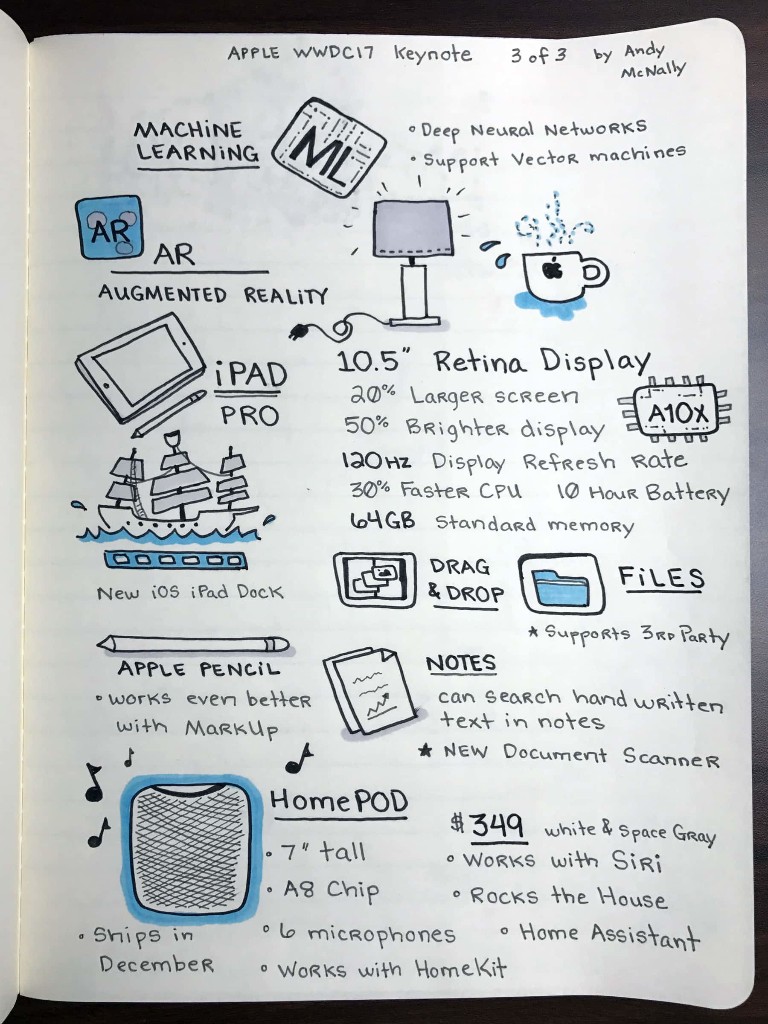 APPLE WWDC17 Keynote 3 of 3 by Andy
McNally
MACHINE
LEARNING
ML
• Deep Neural Networks
• Support Vector machines
AR
AR
AUGMENTED REALITY
iPAD
PRO
10.5" Retina Display
20% Larger screen
50% Brighter display
A10X
120Hz Display Refresh Rate
30% Faster CPU 10 Hour Battery
64GB Standard memory
New iOS iPad Dock
DRAG
& DROP
FiLES
★ Supports 3RD Party
APPLE PENCIL
• works even better
with MarkUp
NOTES
can search hand written
text in notes
★ NEW Document Scanner
HomePOD
• 7" tall
• A8 Chip
• 6 microphones
• Works with HomeKit
$349 white & Space Gray
• Works with Siri
• Rocks the House
• Home Assistant
• Ships in
December